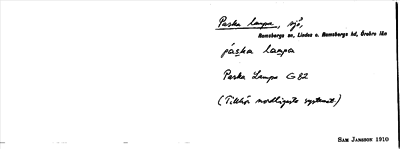 Paska lampa, sjö,
Ramsbergs sn, Lindes o. Ramsbergs hd, Örebro län
páska lampa
Paska Lampa G82
(Tillhör nordligaste systemet)
SAM JANSSON 1910